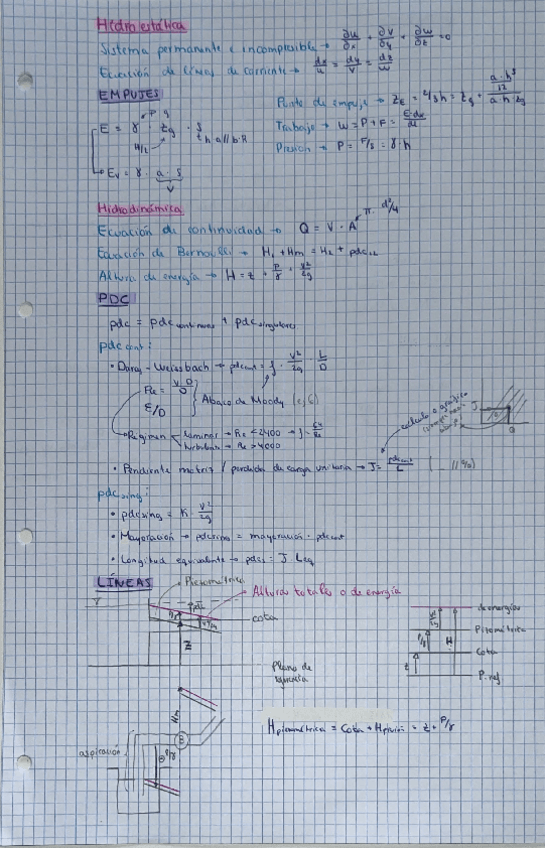 Hidroestática
Sistema permanente e incompresible → ∂u/∂x + ∂v/∂y + ∂w/∂z = 0
Ecuación de líneas de corriente → dx/u = dy/v = dz/w
EMPUJES
E = γ · zg · S
H/2
Ev = γ · a · S
V
Punto de empuje → ZE = 2/3 h = zg + (a·h³/12)/(a·h·zg)
Trabajo → W = P + F = E·dx/dt
Presion → P = F/S = γ·h
Hidrodinámica
Ecuación de continuidad → Q = V · A
π · d²/4
Ecuación de Bernoulli → H1 + Hm = H2 + pdc1-2
Altura de energía → H = z + P/γ + v²/2g
PDC
pdc = pdc continuas + pdc singulares
pdc cont:
• Darcy-Weissbach → pdc cont = f · v²/2g · L/D
Re = V·D/ν
ε/D
Abaco de Moody
Régimen
laminar → Re < 2400 → f = 64/Re
turbulento → Re > 4000
calculo o gráfico
J
Q
• Pendiente motriz / perdida de carga unitaria → J = pdc cont/L
pdc sing:
• pdc sing = K · v²/2g
• Mayoración → pdc sing = mayoración · pdc cont
• Longitud equivalente → pdcs = J Leq
LÍNEAS
Piezométrica
Alturas totales o de energía
cota
Z
Plano de
de energías
Piezométrica
Cota
P. ref
v²/2g
P/γ
H
z
Hm
B
P/γ
aspiración
H piezométrica = Cota + H presión = z + P/γ